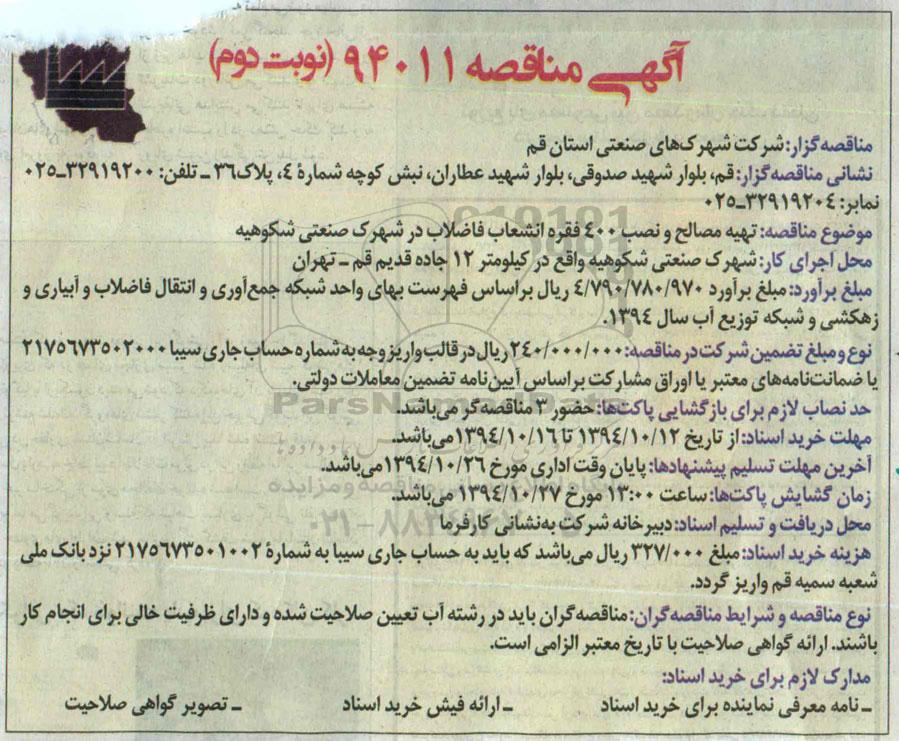 آگهی مناقصه ۹۴۰۱۱ (نوبت دوم)
مناقصه‌گزار: شرکت شهرک‌های صنعتی استان قم
نشانی مناقصه‌گزار: قم، بلوار شهید صدوقی، بلوار شهید عطاران، نبش کوچه شمارهٔ ۴، پلاک۳۶ ـ تلفن: ۳۲۹۱۹۲۰۰ـ۰۲۵
نمابر: ۳۲۹۱۹۲۰۴ـ۰۲۵
موضوع مناقصه: تهیه مصالح و نصب ۴۰۰ فقره انشعاب فاضلاب در شهرک صنعتی شکوهیه
محل اجرای کار: شهرک صنعتی شکوهیه واقع در کیلومتر ۱۲ جاده قدیم قم ـ تهران
مبلغ برآورد: مبلغ برآورد ۴/۷۹۰/۷۸۰/۹۷۰ ریال براساس فهرست بهای واحد شبکه جمع‌آوری و انتقال فاضلاب و آبیاری و
زهکشی و شبکه توزیع آب سال ۱۳۹۴.
نوع و مبلغ تضمین شرکت در مناقصه: ۲۴۰/۰۰۰/۰۰۰ ریال در قالب واریز وجه به شماره حساب جاری سیبا ۲۱۷۵۶۷۳۵۰۲۰۰۰
یا ضمانت‌نامه‌های معتبر یا اوراق مشارکت براساس آیین‌نامه تضمین معاملات دولتی.
حد نصاب لازم برای بازگشایی پاکت‌ها: حضور ۳ مناقصه‌گر می‌باشد.
مهلت خرید اسناد: از تاریخ ۱۳۹۴/۱۰/۱۲ تا ۱۳۹۴/۱۰/۱۶ می‌باشد.
آخرین مهلت تسلیم پیشنهادها: پایان وقت اداری مورخ ۱۳۹۴/۱۰/۲۶ می‌باشد.
زمان گشایش پاکت‌ها: ساعت ۱۳:۰۰ مورخ ۱۳۹۴/۱۰/۲۷ می‌باشد.
محل دریافت و تسلیم اسناد: دبیرخانه شرکت به‌نشانی کارفرما
هزینه خرید اسناد: مبلغ ۳۲۷/۰۰۰ ریال می‌باشد که باید به حساب جاری سیبا به شمارهٔ ۲۱۷۵۶۷۳۵۰۱۰۰۲ نزد بانک ملی
شعبه سمیه قم واریز گردد.
نوع مناقصه و شرایط مناقصه‌گران: مناقصه‌گران باید در رشته آب تعیین صلاحیت شده و دارای ظرفیت خالی برای انجام کار
باشند. ارائه گواهی صلاحیت با تاریخ معتبر الزامی است.
مدارک لازم برای خرید اسناد:
ـ نامه معرفی نماینده برای خرید اسناد ـ ارائه فیش خرید اسناد ـ تصویر گواهی صلاحیت
ParsNamadData